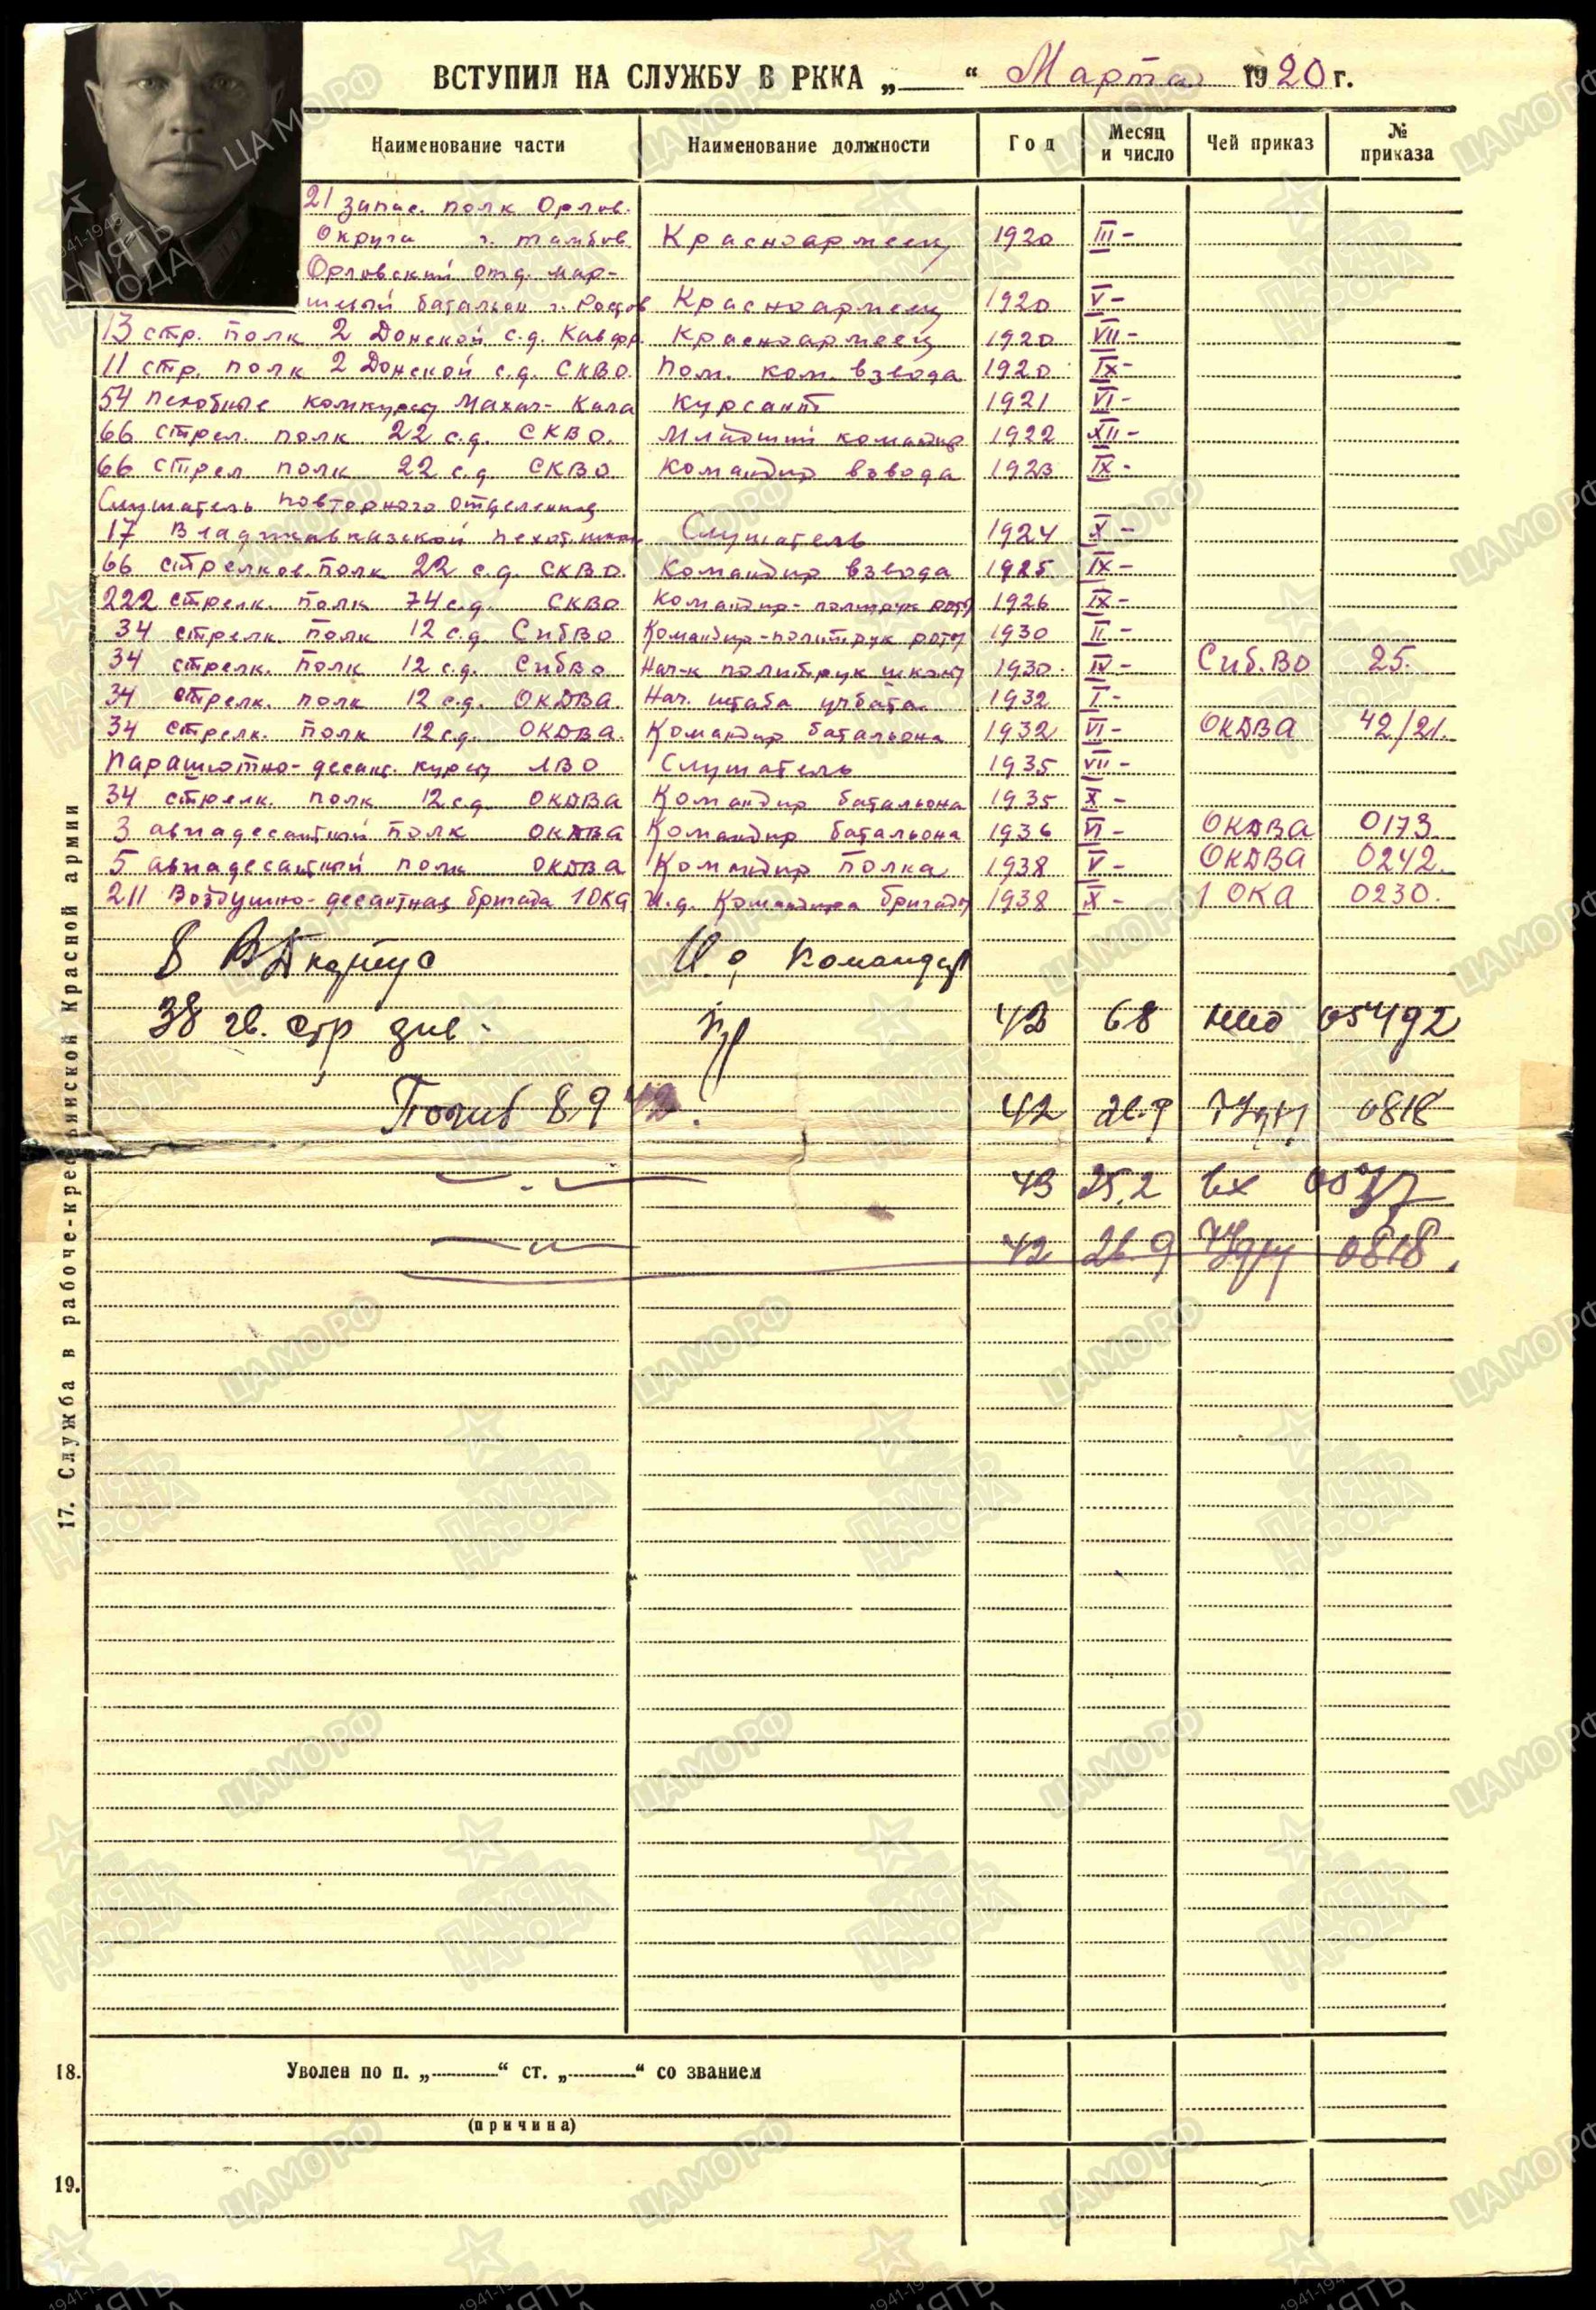 ВСТУПИЛ НА СЛУЖБУ В РККА „ “ Марта 1920 г.
Наименование части Наименование должности Год Месяц и число Чей приказ № приказа
21 запас. полк Орлов.
Округа г. Тамбов Красноармеец 1920 III-
Орловский отд. мар-
шевый батальон г. Ростов Красноармеец 1920 V-
13 стр. полк 2 Донской с.д. Кавфр. Красноармеец 1920 VII-
11 стр. полк 2 Донской с.д. СКВО Пом. ком. взвода 1920 IX-
54 пехотные комкурсы Махач-Кала Курсант 1921 VI-
66 стрел. полк 22 с.д. СКВО. Младший командир 1922 XII-
66 стрел полк 22 с.д. СКВО. Командир взвода 1923 IX-
Слушатель повторного отделения
17 Владикавказской пехот. школы Слушатель 1924 X-
66 стрелков. полк 22 с.д. СКВО. Командир взвода 1925 IX-
222 стрелк. полк 74 с.д. СКВО Командир-политрук роты 1926 IX-
34 стрелк. полк 12 с.д. СибВО Командир-политрук роты 1930 II-
34 стрелк. полк 12 с.д. СибВО Нач-к политрук школы 1930. IV- Сиб.ВО 25.
34 стрелк. полк 12 с.д. ОКДВА. Нач. штаба учбата 1932 I-
34 стрелк. полк 12 с.д. ОКДВА. Командир батальона 1932 VI- ОКДВА 42/21.
Парашютно-десант. курсы ЛВО Слушатель 1935 VII-
34 стрелк. полк 12 с.д. ОКДВА Командир батальона 1935 X-
3 авиадесантный полк ОКДВА Командир батальона 1936 VI- ОКДВА 0173
5 авиадесантный полк ОКДВА Командир полка 1938 V- ОКДВА 0242.
211 Воздушно-десантная бригада 1 ОКА И.д. Командира бригады 1938 X- 1 ОКА 0230.
8 ВД корпус И.д. Командир
38 гв. стр див. 42 6.8 НКО 05492
Погиб 8 9 42. 42 26.9 0818
—"— 43 25.2 вх
—"— 42 26 9 0818.
17. Служба в рабоче-крестьянской Красной армии
18. Уволен по п. „ “ ст. „ “ со званием
(причина)
19.
ЦАМО РФ
ПАМЯТЬ НАРОДА
1941-1945